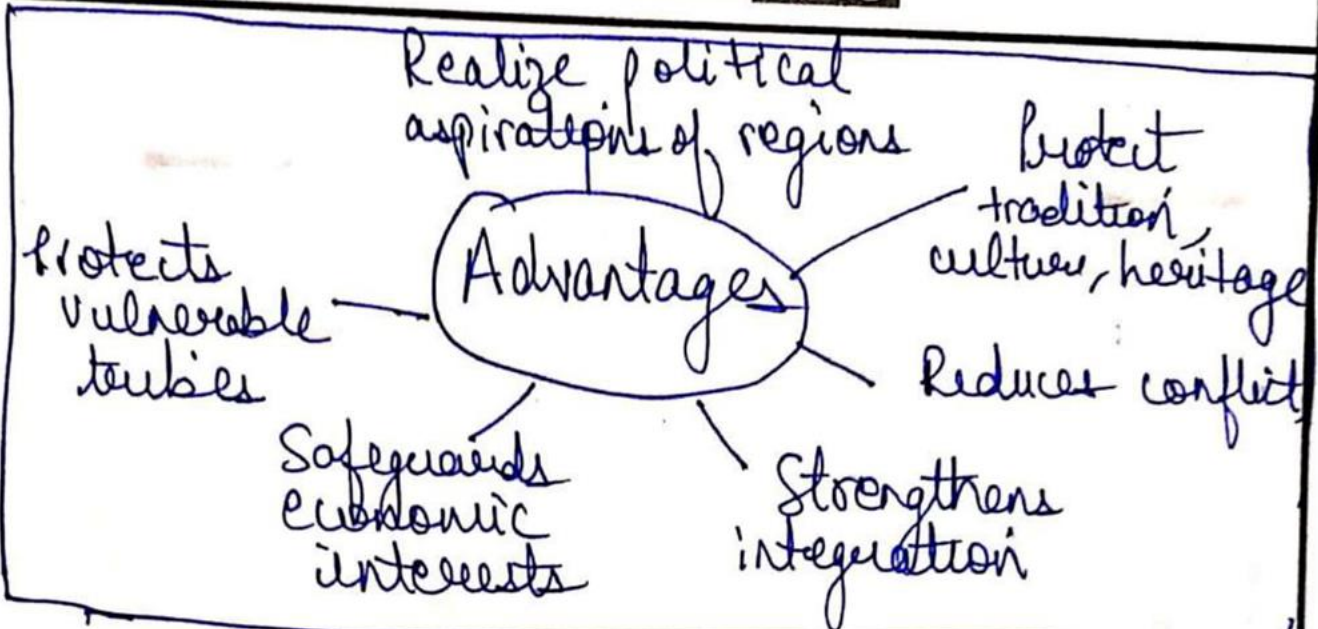 Realize political
aspirations of regions
Protect
tradition,
culture, heritage
Advantages
Protects
vulnerable
tribes
Reduces conflict
Safeguards
economic
interests
Strengthens
integration